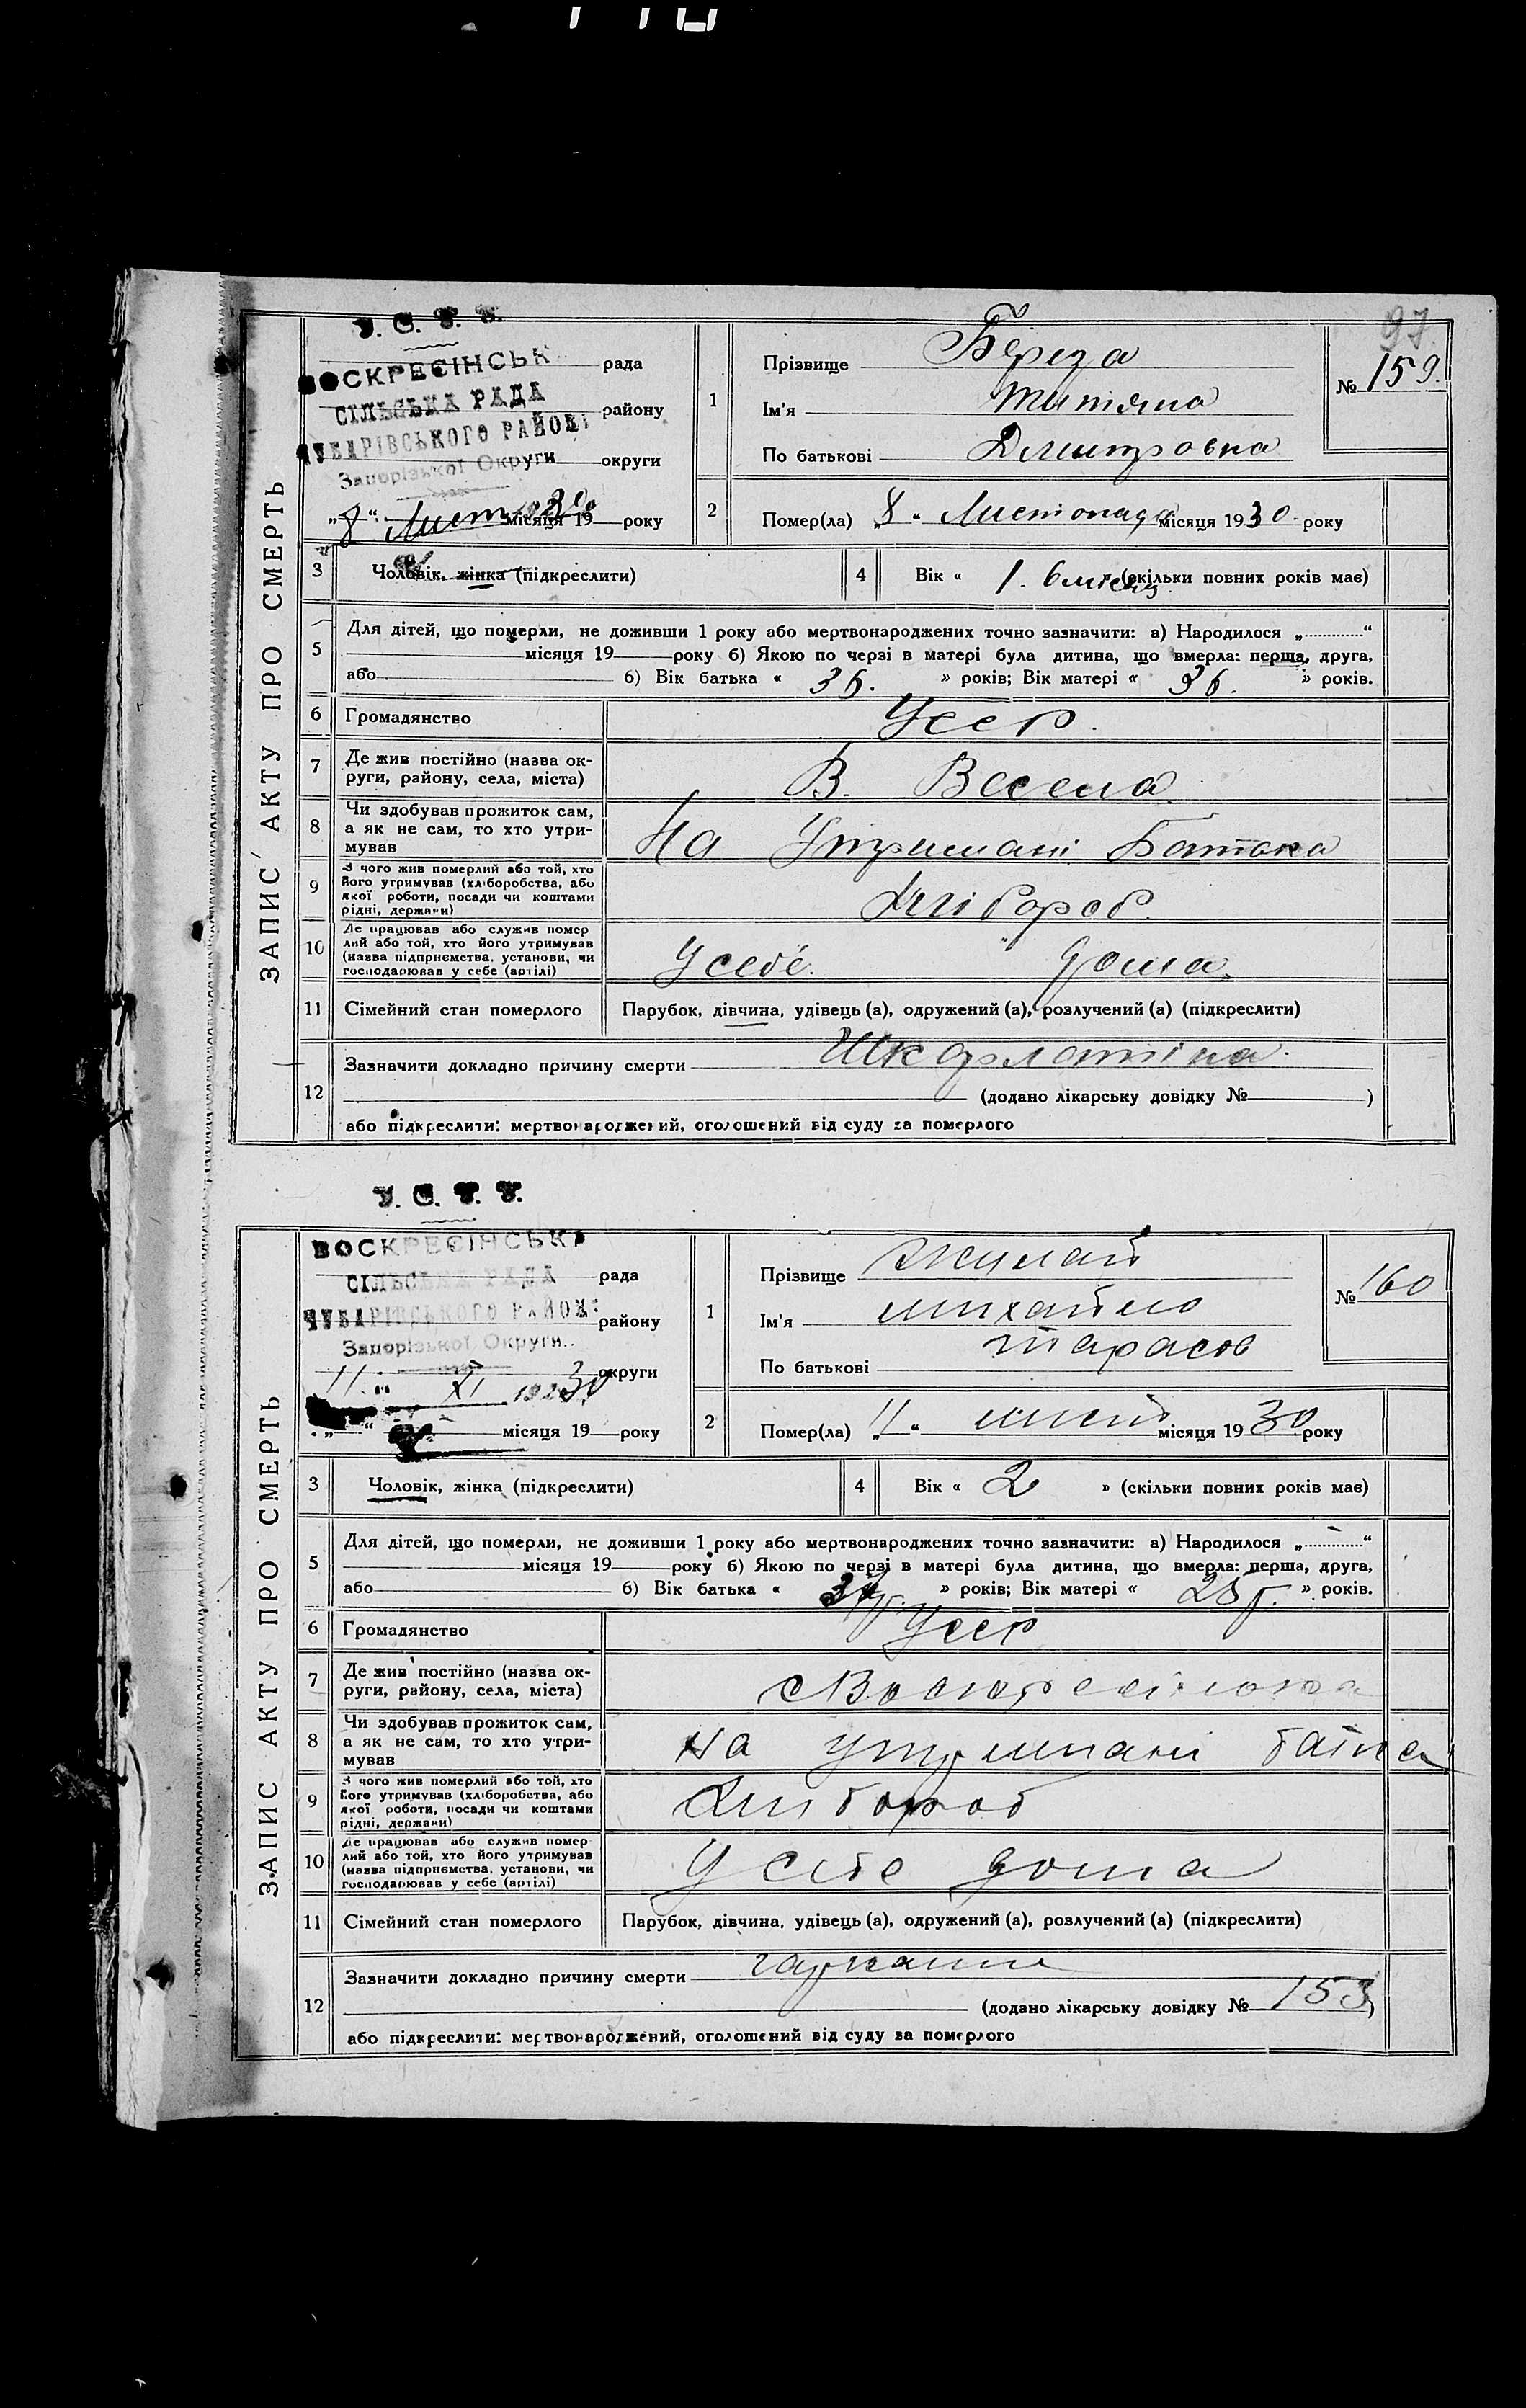 97
ЗАПИС АКТУ ПРО СМЕРТЬ
У. С. Р. Р.
ВОСКРЕСІНСЬК рада
СІЛЬСЬКА РАДА району
ЧУБАРІВСЬКОГО РАЙОН
Запорізької Округи округи
„8“ Лист місяця 1930 року
1
Прізвище Береза
Ім'я Титяна
По батькові Дмитровна
№ 159.
2
Помер(ла) „8“ Листопада місяця 1930 року
3 Чоловік, жінка (підкреслити)
4 Вік « 1. 6 місяц » (скільки повних років має)
5 Для дітей, що померли, не доживши 1 року або мертвонароджених точно зазначити: а) Народилося „ “
місяця 19 року б) Якою по черзі в матері була дитина, що вмерла: перша, друга,
або б) Вік батька « 36. » років; Вік матері « 36. » років.
6 Громадянство Усср.
7 Де жив постійно (назва округи, району, села, міста) В. Весела
8 Чи здобував прожиток сам, а як не сам, то хто утримував На Утримані Батька
9 З чого жив померлий або той, хто його утримував (хліборобства, або якої роботи, посади чи коштами рідні, держави) Хлібороб.
10 Де працював або служив помер лий або той, хто його утримував (назва підприємства, установи, чи господарював у себе (артілі) У себе. дома.
11 Сімейний стан померлого Парубок, дівчина, удівець (а), одружений (а), розлучений (а) (підкреслити)
12 Зазначити докладно причину смерти Шкарлатіна.
(додано лікарську довідку № )
або підкреслити: мертвонароджений, оголошений від суду за померлого
ЗАПИС АКТУ ПРО СМЕРТЬ
У. С. Р. Р.
ВОСКРЕСІНСЬКА
СІЛЬСЬКА РАДА рада
ЧУБАРІВСЬКОГО РАЙОН району
Запорізької Округи
11 XI 1930 округи
„ “ місяця 19 року
1
Прізвище
Ім'я михайло
По батькові тарасов
№ 160
2
Помер(ла) „11“ лист місяця 1930 року
3 Чоловік, жінка (підкреслити)
4 Вік « 2 » (скільки повних років має)
5 Для дітей, що померли, не доживши 1 року або мертвонароджених точно зазначити: а) Народилося „ “
місяця 19 року б) Якою по черзі в матері була дитина, що вмерла: перша, друга,
або б) Вік батька « » років; Вік матері « » років.
6 Громадянство Усср
7 Де жив постійно (назва округи, району, села, міста)
8 Чи здобував прожиток сам, а як не сам, то хто утримував на утримані
9 З чого жив померлий або той, хто його утримував (хліборобства, або якої роботи, посади чи коштами рідні, держави) Хлибороб
10 Де працював або служив помер лий або той, хто його утримував (назва підприємства, установи, чи господарював у себе (артілі) У себе дома
11 Сімейний стан померлого Парубок, дівчина, удівець (а), одружений (а), розлучений (а) (підкреслити)
12 Зазначити докладно причину смерти
(додано лікарську довідку № 153)
або підкреслити: мертвонароджений, оголошений від суду за померлого